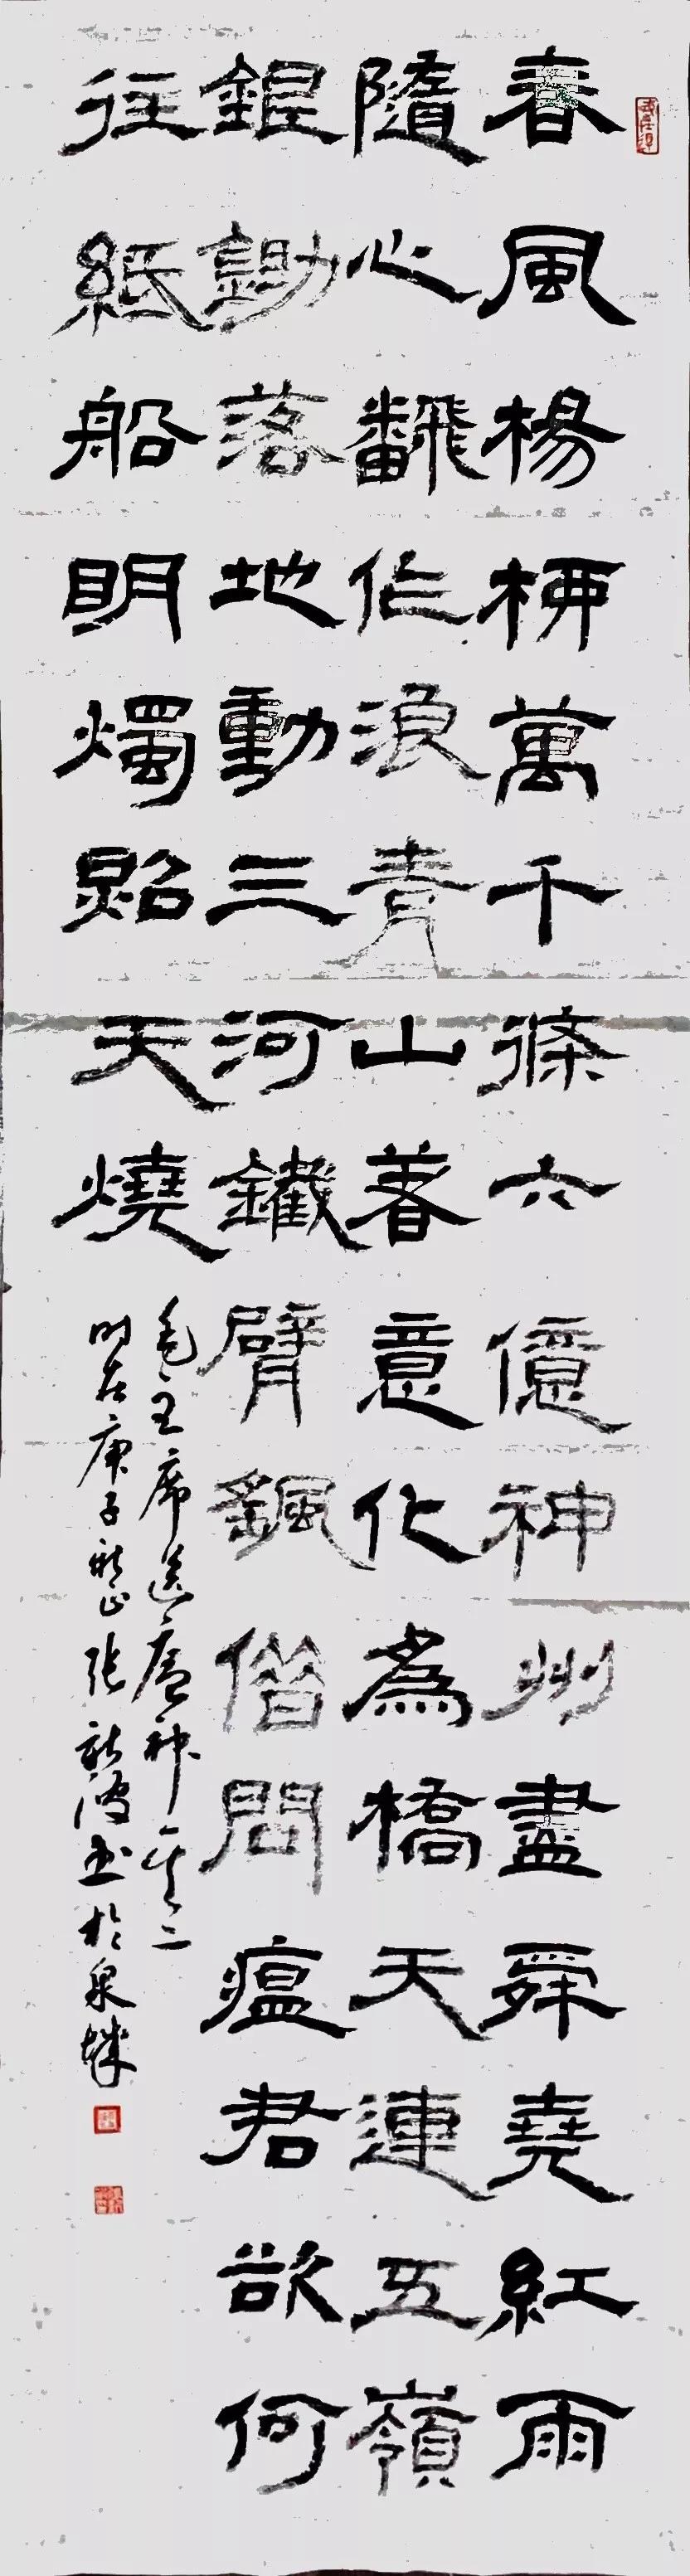 春風楊柳萬千條六億神州盡舜堯紅雨
隨心飜作浪青山著意化為橋天連五嶺
銀鋤落地動三河鐵臂颻借問瘟君欲何
往紙船眀燭照天燒
毛主席送瘟神其二
時在庚子新正張書於泉城